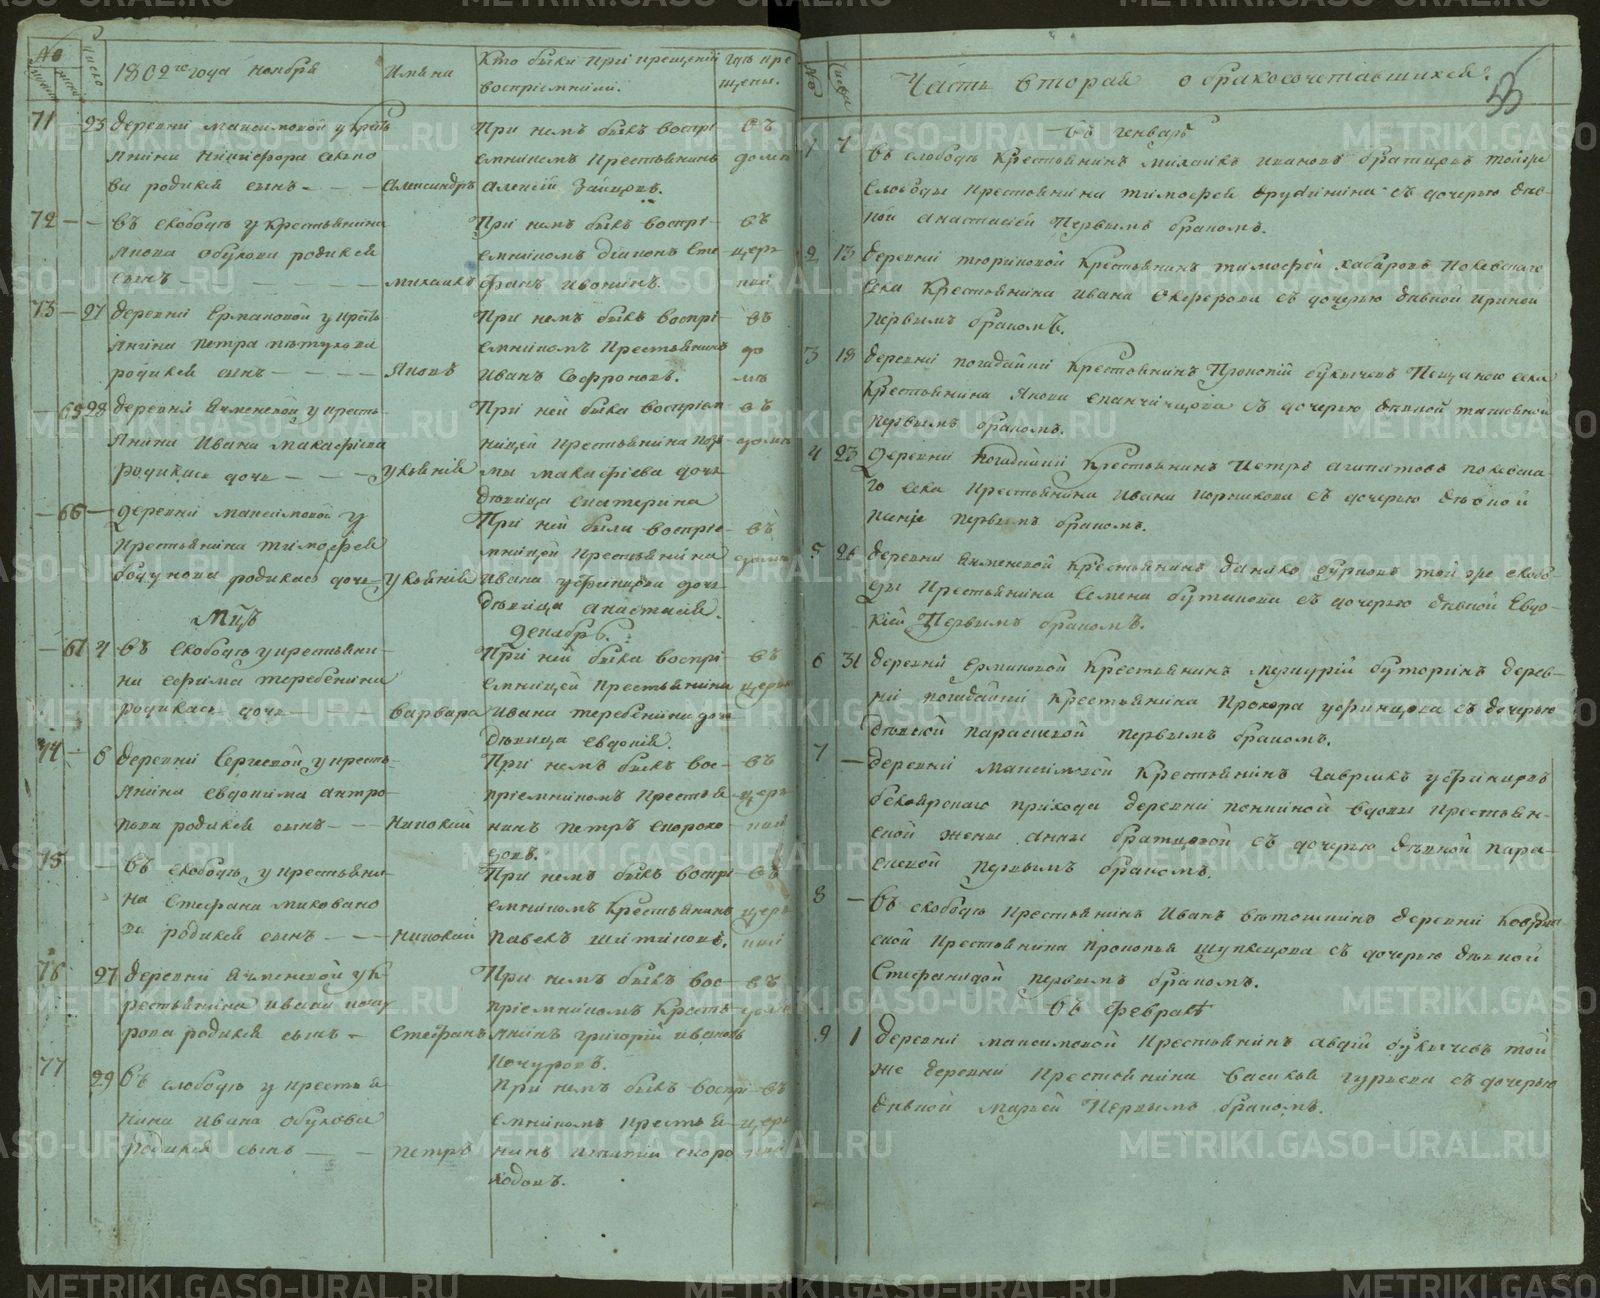 №
число
1802го года ноября
Имяна
Кто были при крещении
воспріемники.
Гдѣ кре
щены.
71 — 23 деревни Максимовой у кресть
янина Никифора
ва родился сынъ — Александръ
При немъ былъ воспрі
емникомъ Крестьянинъ
Алексѣй Зайковъ.
въ
домѣ
72 — — Въ слободѣ у крестьянина
Якова Обухова родился
сынъ — Михаилъ
При немъ былъ воспрі-
емникомъ діаконъ Сте-
фанъ Ивонинъ.
въ
церк
73 — 27 деревни Ермаковой у кресть
янина Петра Пѣтухова
родился сынъ — Яковъ
При немъ былъ воспрі-
емникомъ Крестьянинъ
Иванъ Софроновъ.
въ
до
мѣ
— 65 28 деревни Ячменевой у кресть-
янина Ивана Макафіева
родилась дочь — Ульянія
При ней была воспріем
ницей крестьянина
мы Макафіева дочь
дѣвица Екатерина
въ
домѣ
— 66 — деревни Максимовой у
крестьянина Тимофея
родилась дочь Ульянія
При ней была воспріе-
мницей крестьянина
Ивана Уфинцова дочь
дѣвица Анастасія.
въ
домѣ
Мцъ Декабрь.
— 67 4 Въ слободѣ у крестьяни-
на Ефима Теребенина
родилась дочь — Варвара
При ней была воспрі-
емницей крестьянина
Ивана Теребенина дочь
дѣвица Евдокія.
въ
церк
74 — 6 деревни Сергѣевой у кресть-
янина Евдокима Антро-
пова родился сынъ — Николай
При немъ былъ вос-
пріемникомъ крестья
нинъ Петръ Скорохо-
довъ.
въ
церк
75 — Въ слободѣ у крестьяни-
на Стефана Миловано
ва родился сынъ — Николай
При немъ былъ воспрі
емникомъ крестьянинъ
Павелъ Шитиковъ.
въ
церк
76 27 деревни Ячменевой у к
рестьянина Ивана Кочу
рова родился сынъ — Стефанъ
При немъ былъ вос-
пріемникомъ кресть
янинъ Григорій Ивановъ
Кочуровъ.
въ
домѣ
77 29 Въ слободѣ у крестья
нина Ивана Обухова
родился сынъ — Петръ
При немъ былъ воспрі
емникомъ крестья
нинъ Игнатій Скоро
ходовъ.
въ
церк
№
число
Часть вторая о бракосочетавшихся.
Въ генварѣ
1 7 Въ слободѣ Крестьянинъ Михаилъ Ивановъ Братцовъ той же
слободы крестьянина Тимофея Трубинина съ дочерью дѣв-
кой Анастасіей первымъ бракомъ.
2 13 деревни Тюриковой крестьянинъ Тимофей Хабаровъ Покевскаго
села крестьянина Ивана съ дочерью дѣвкой Ириной
первымъ бракомъ.
3 18 деревни Погадайки Крестьянинъ Прокопій Букычевъ Пещанаго села
крестьянина Якова Епанчинцова съ дочерью дѣвкой Татьяной
первымъ бракомъ.
4 23 деревни Погадайки Крестьянинъ Петръ Агипитовъ Покевска-
го села крестьянина Ивана съ дочерью дѣвкой
первымъ бракомъ.
5 26 деревни Ячменевой Крестьянинъ Данило Дурновъ той же слобо-
ды крестьянина Семена Бутакова съ дочерью дѣвкой Евдо-
кіей Первымъ бракомъ.
6 31 деревни Ермаковой Крестьянинъ Меркурій Буторинъ дерев-
ни Погадайки Крестьянина Прохора Уфинцова съ дочерью
дѣвкой Параскевой первымъ бракомъ.
7 — деревни Максимовой Крестьянинъ Гаврилъ Уфинцовъ
Белоярскаго прихода деревни вдовы крестьян-
ской жены Анны Братцовой съ дочерью дѣвкой Пара-
скевой первымъ бракомъ.
8 — Въ слободѣ крестьянинъ Иванъ Ветошкинъ деревни
ской крестьянина Прокопья съ дочерью дѣвкой
Стефанидой первымъ бракомъ.
Въ февралѣ
9 1 деревни Максимовой крестьянинъ Авдій Букычевъ той
же деревни крестьянина Василья Гурьева съ дочерью
дѣвкой Марьей Первымъ бракомъ.
METRIKI.GASO-URAL.RU